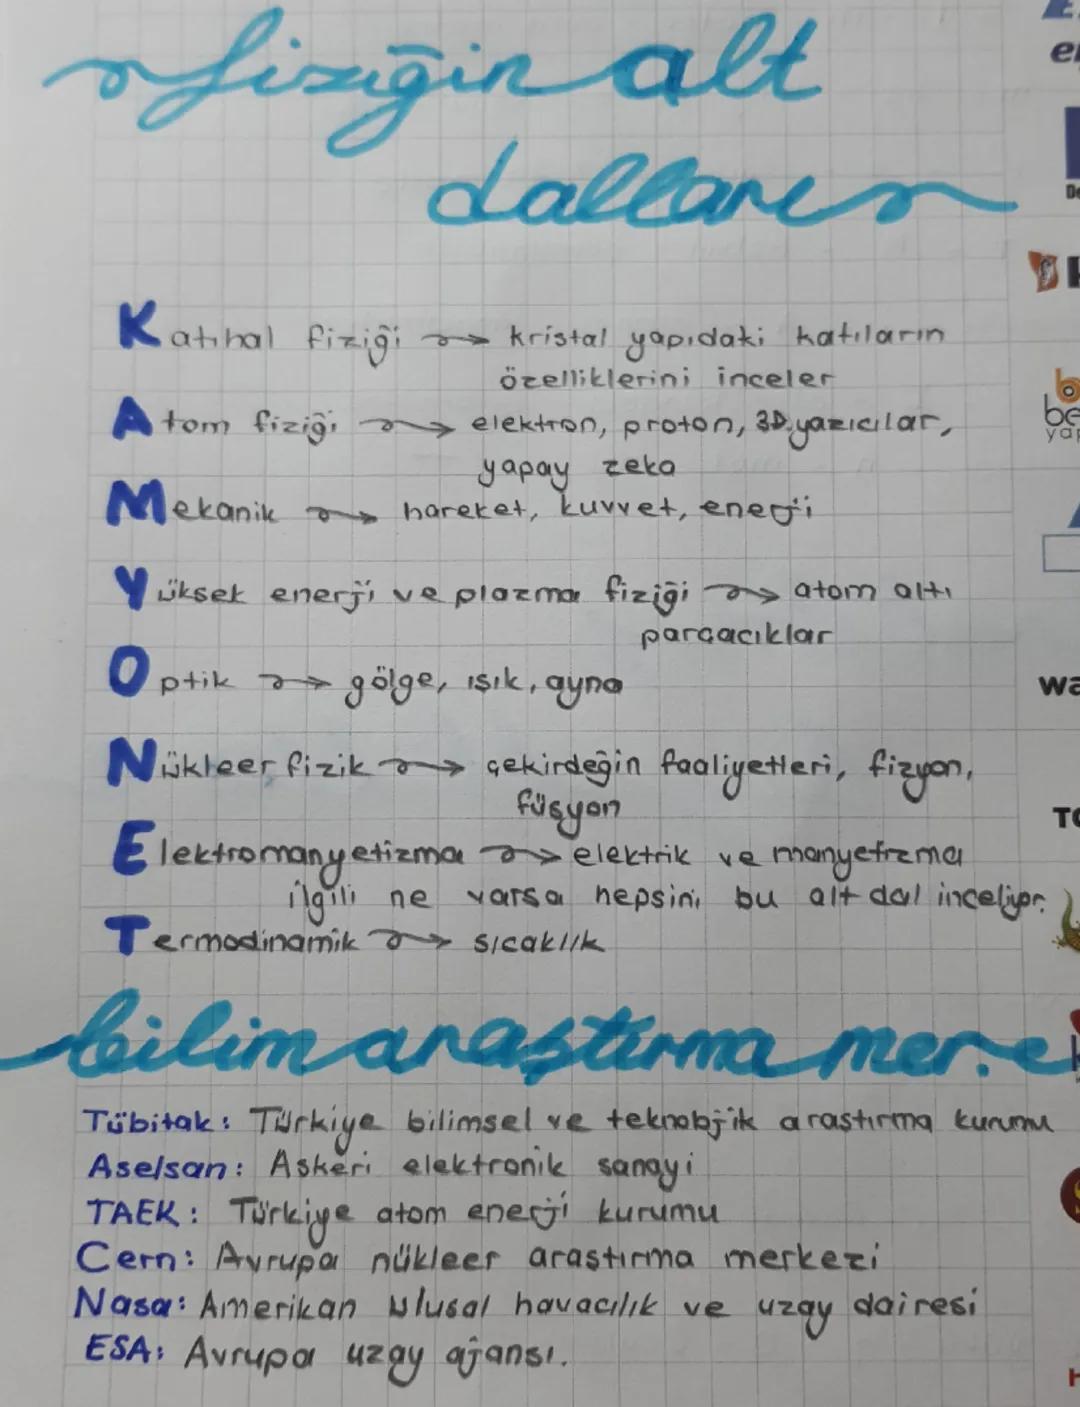 fiziğin alt
dalları
Katıhal fiziği → kristal yapıdaki katıların
özelliklerini inceler
Atom fiziği → elektron, proton, 3D yazıcılar,
yapay zeka
Mekanik → hareket, kuvvet, enerji
Yüksek enerji ve plazma fiziği → atom altı
parçacıklar
Optik → gölge, ışık, ayna
Nükleer fizik → çekirdeğin faaliyetleri, fizyon,
füsyon
Elektromanyetizma → elektrik ve manyetizma
ilgili ne varsa hepsini bu alt dal inceliyor.
Termodinamik → sıcaklık
bilim araştırma mer.
Tübitak: Türkiye bilimsel ve teknolojik araştırma kurumu
Aselsan: Askeri elektronik sanayi
TAEK: Türkiye atom enerji kurumu
Cern: Avrupa nükleer araştırma merkezi
Nasa: Amerikan Ulusal havacılık ve uzay dairesi
ESA: Avrupa uzay ajansı.